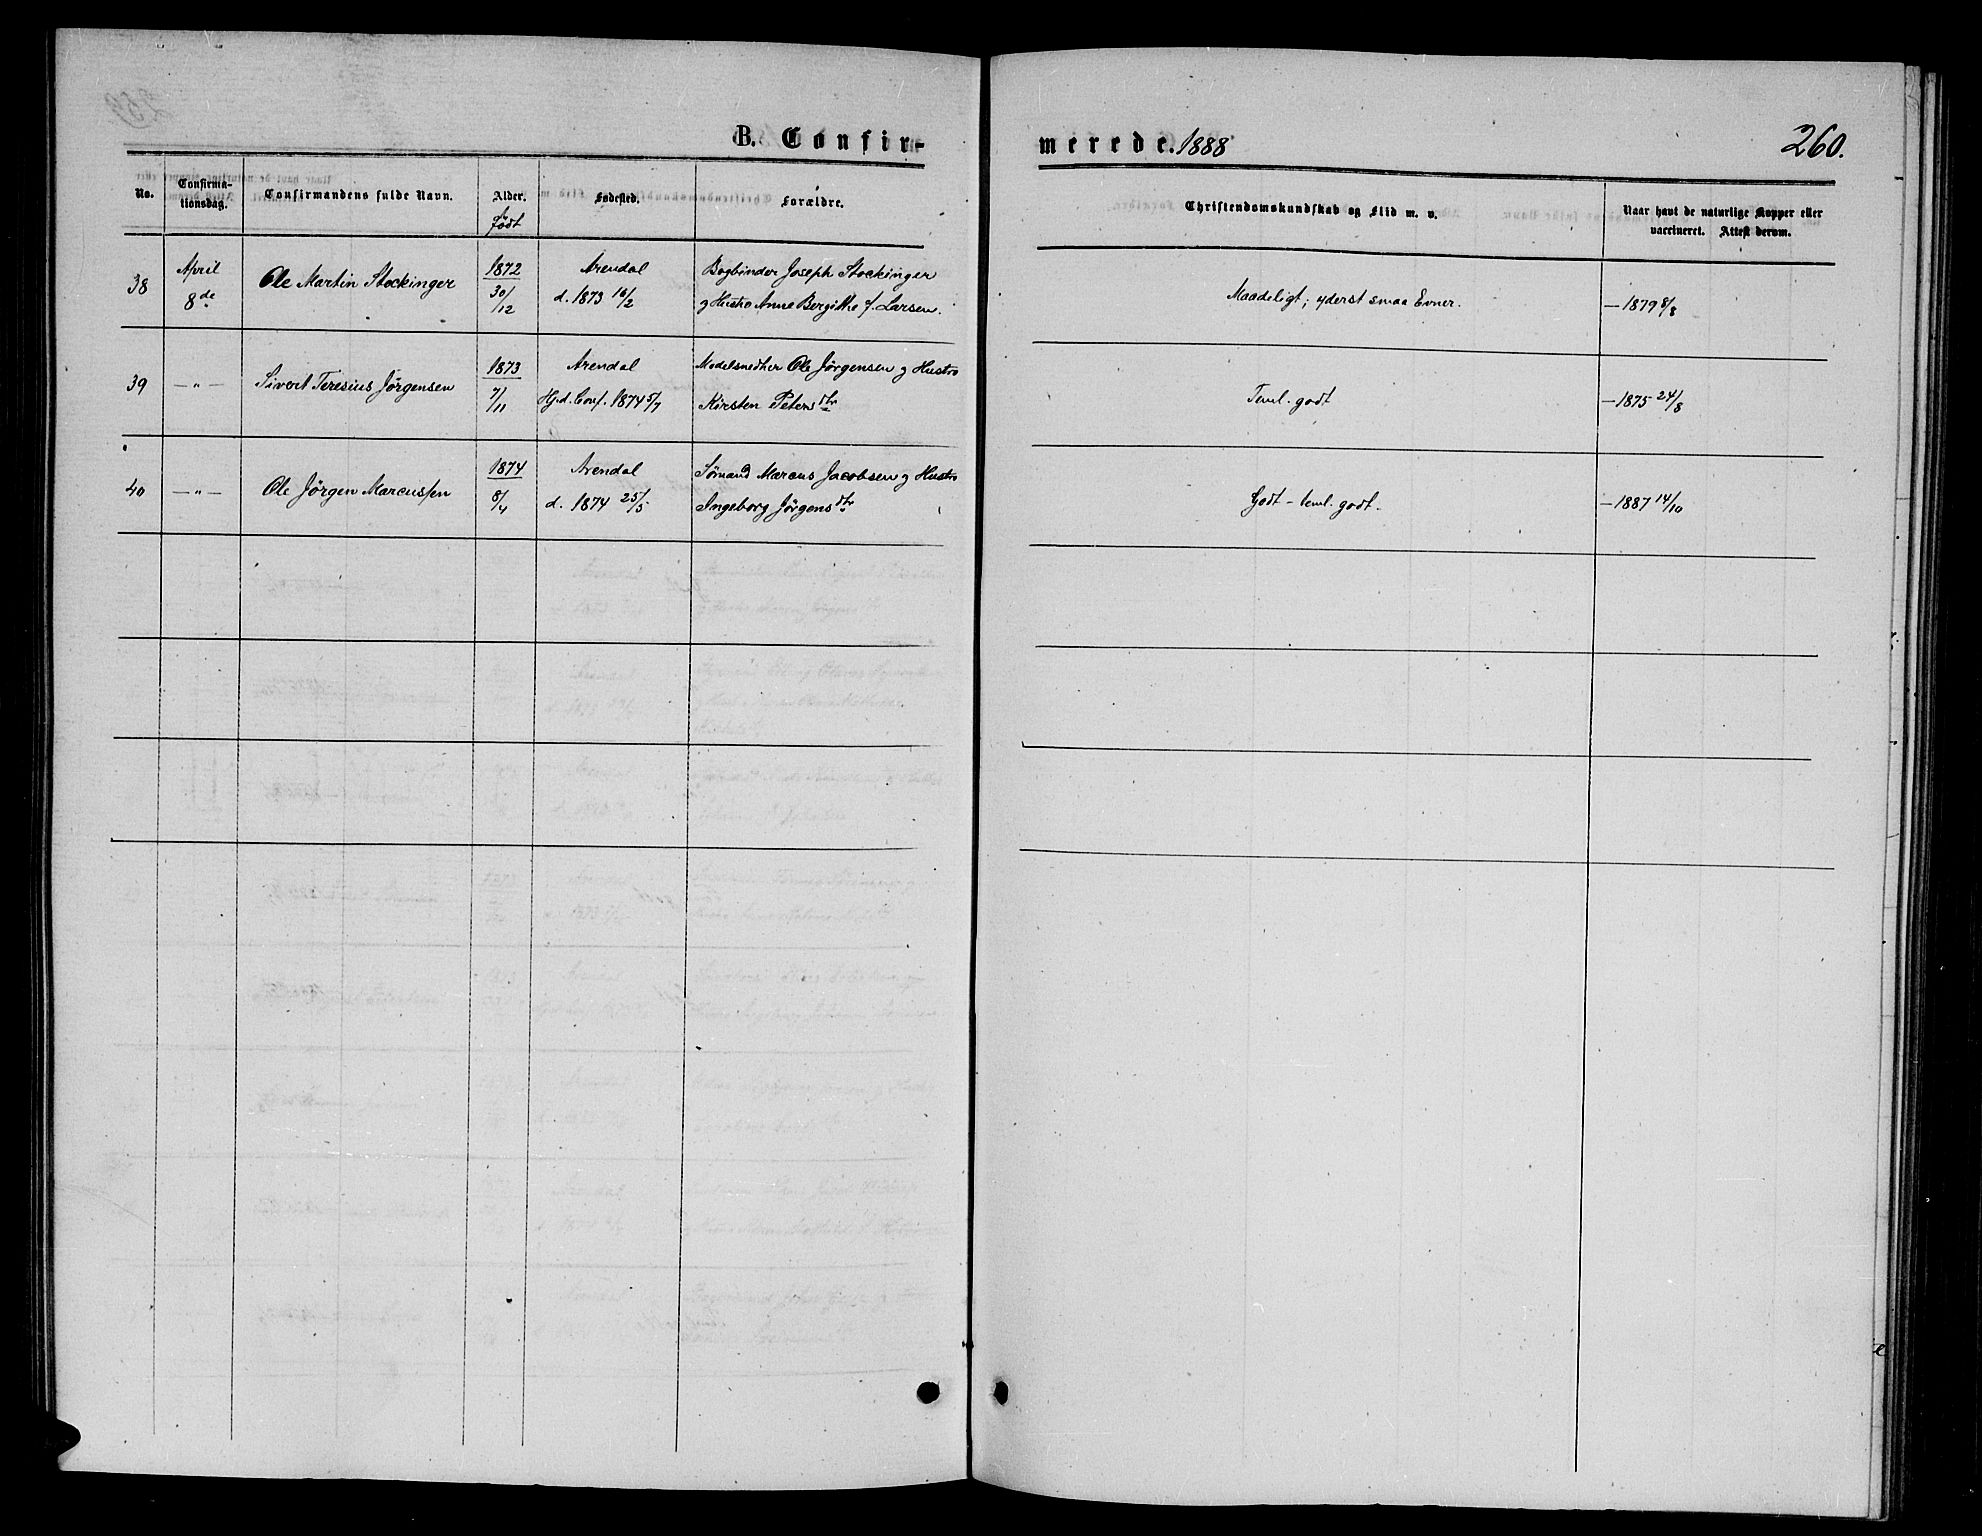 B. Confir-
merede. 1888
260.
No.
Confirma-
tionsdag.
Confirmandens fulde Navn.
Alder.
født
Fødested.
Forældre.
Christendomskundskab og Flid m. v.
Naar havt de naturlige Kopper eller
vaccineret. Attest derom.
38
April
8de
Ole Martin Stockinger
1872
30/12
Arendal
d. 1873 16/2
Bogbinder Joseph Stockinger
g Hustro Anne Bergitthe f. Larsen.
Maadeligt; yderst smaa Evner.
— 1879 8/8
39
— " —
Sivert Teresius Jörgensen
1873
7/11
Arendal
Hj.d. Conf. 1874 5/7
Modelsnedker Ole Jörgensen g Hustro
Kirsten Petersdtr
Teml. godt
— 1875 24/8
40
— " —
Ole Jörgen Marcussen
1874
8/4
Arendal
d. 1874 25/5
Sømand Marcus Jacobsen g Hustro
Ingeborg Jörgensdtr
Godt - teml. godt.
— 1887 14/10